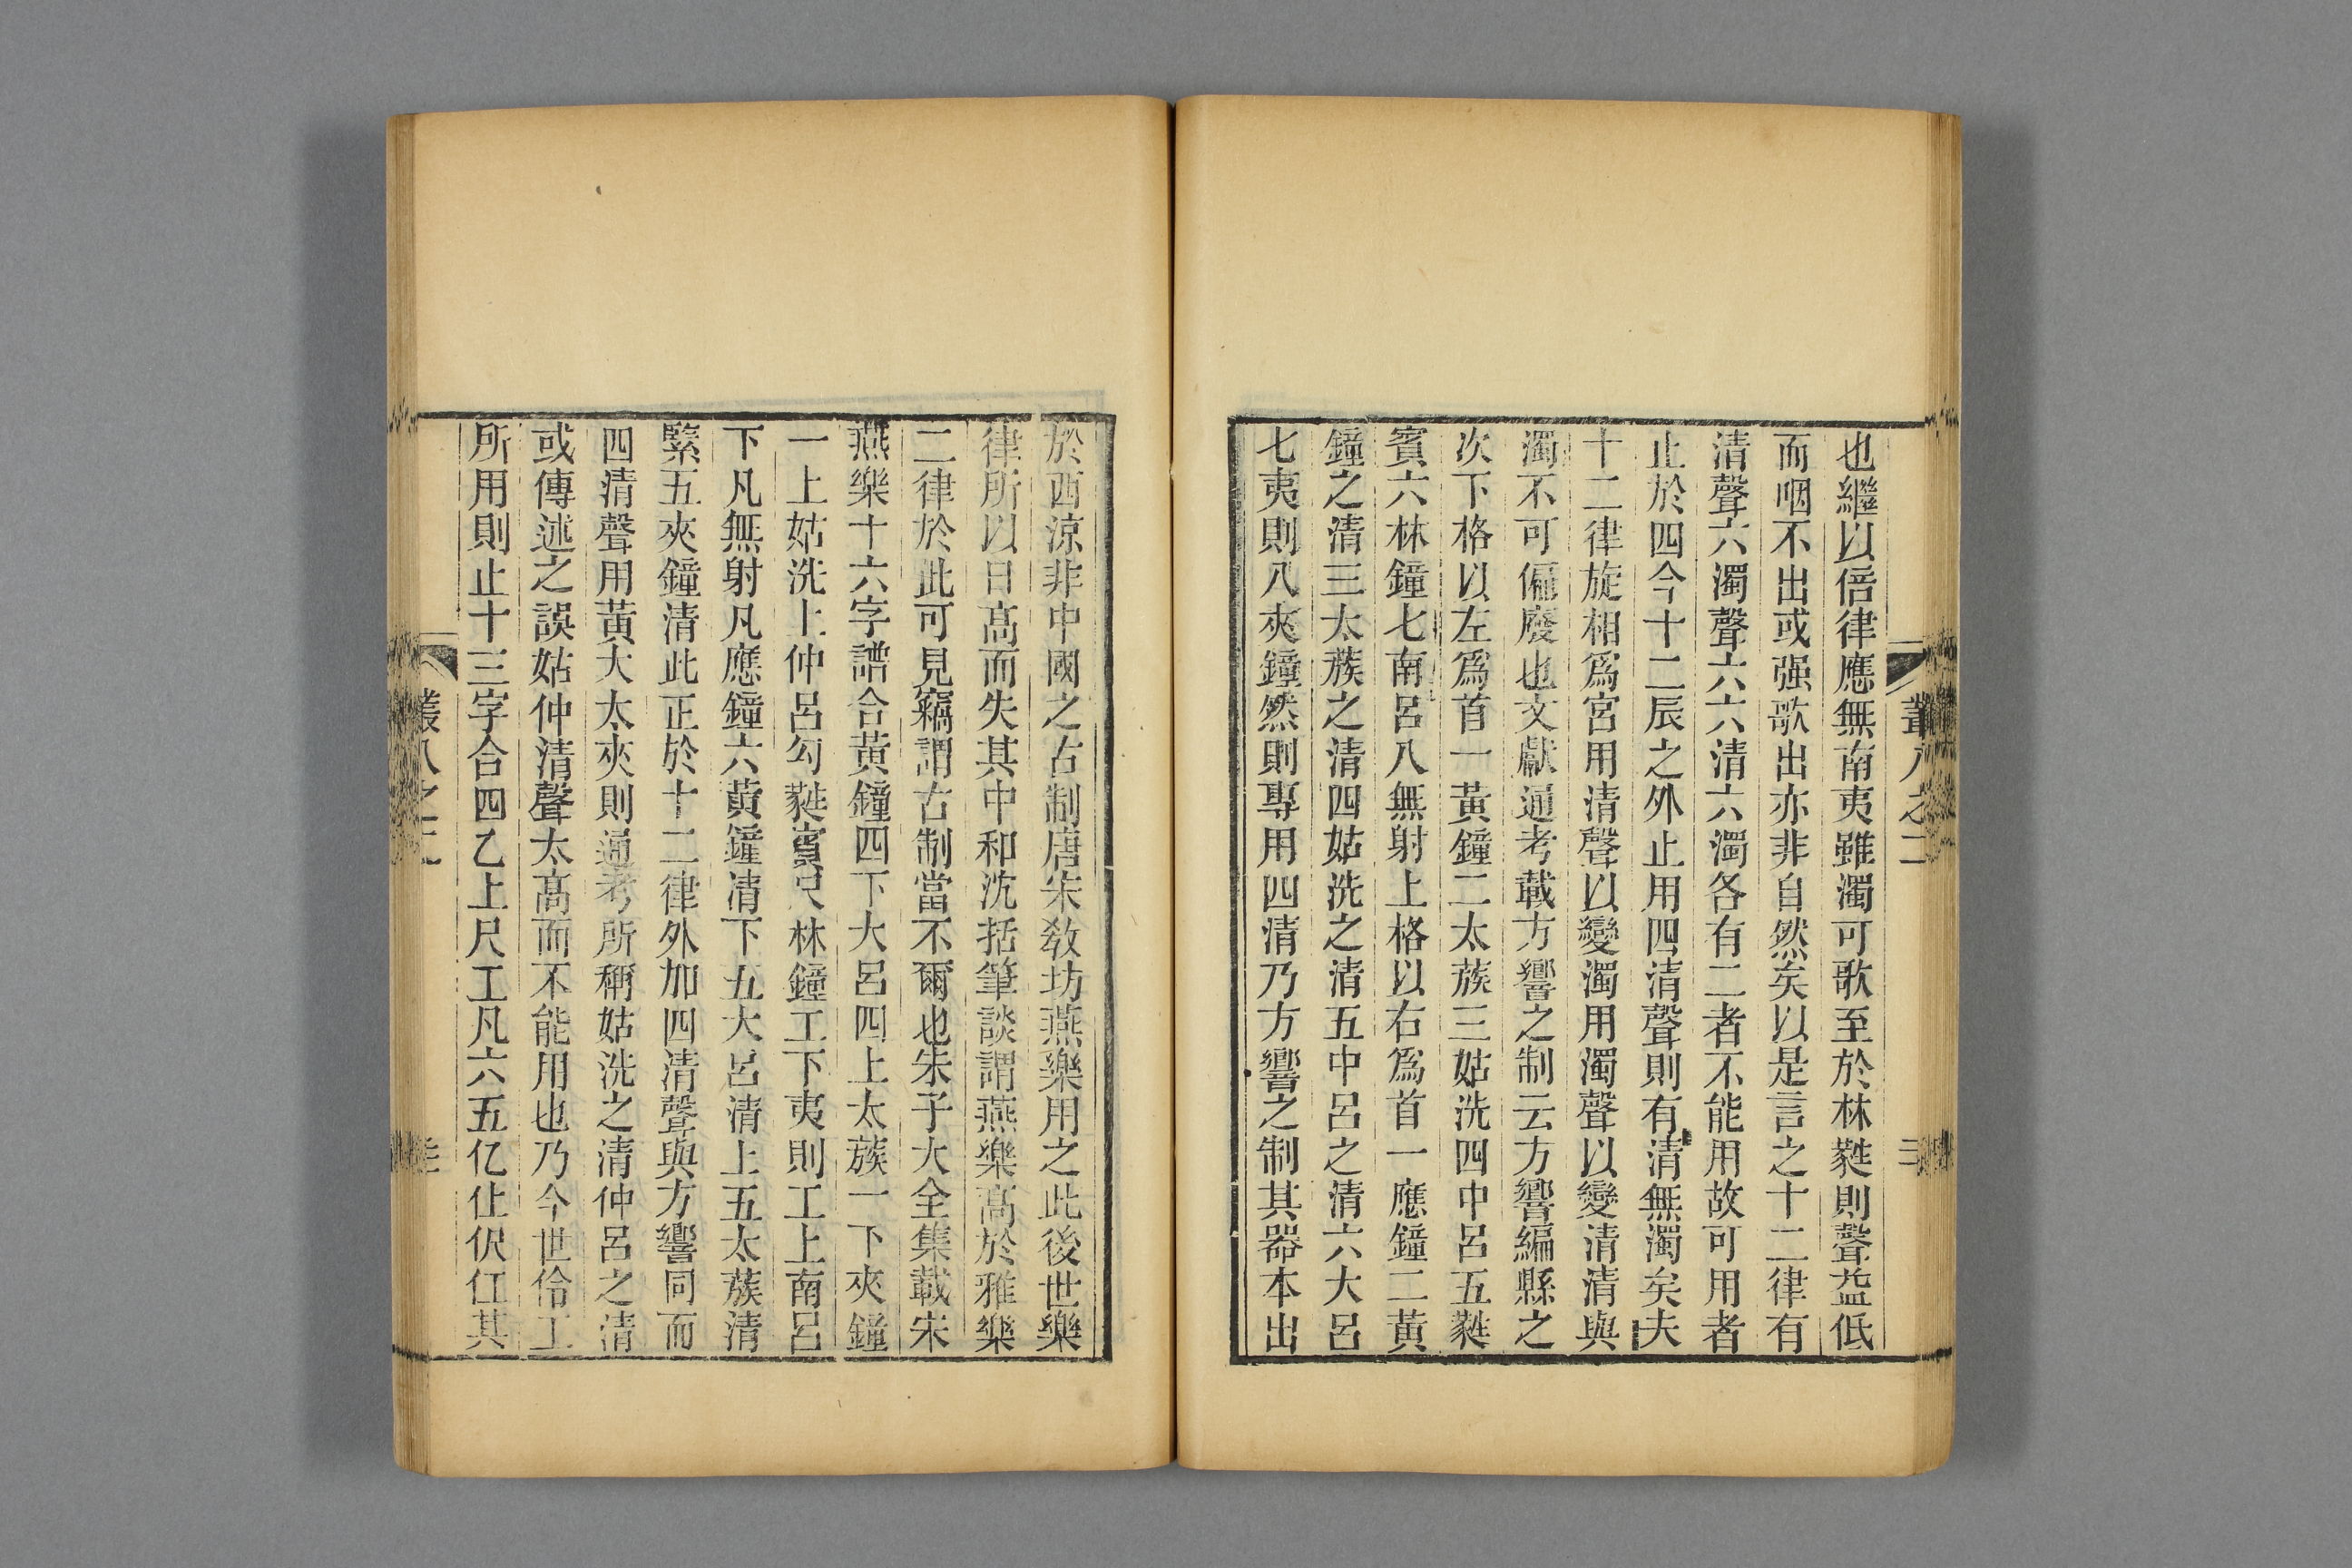 叢八之二
也繼以倍律應無南夷雖濁可歌至於林蕤則聲益低
而咽不出或强歌出亦非自然矣以是言之十二律有
清聲六濁聲六六清六濁各有二者不能用故可用者
止於四今十二辰之外止用四清聲則有清無濁矣夫
十二律旋相爲宮用清聲以變濁用濁聲以變清清與
濁不可偏廢也文獻通考載方響之制云方響編縣之
次下格以左爲首一黃鐘二太蔟三姑洗四中呂五蕤
賓六林鐘七南呂八無射上格以右爲首一應鐘二黃
鐘之清三太蔟之清四姑洗之清五中呂之清六大呂
七夷則八夾鐘然則專用四清乃方響之制其器本出
於西涼非中國之古制唐宋敎坊燕樂用之此後世樂
律所以日高而失其中和沈括筆談謂燕樂高於雅樂
二律於此可見竊謂古制當不爾也朱子大全集載宋
燕樂十六字譜合黃鐘四下大呂四上太蔟一下夾鐘
一上姑洗上仲呂勾蕤賓尺林鐘工下夷則工上南呂
下凡無射凡應鐘六黃鐘清下五大呂清上五太蔟清
緊五夾鐘清此正於十二律外加四清聲與方響同而
四清聲用黃大太夾則通考所稱姑洗之清仲呂之清
或傳述之誤姑仲清聲太高而不能用也乃今世伶工
所用則止十三字合四乙上尺工凡六五亿仩伬仜其
叢八之二